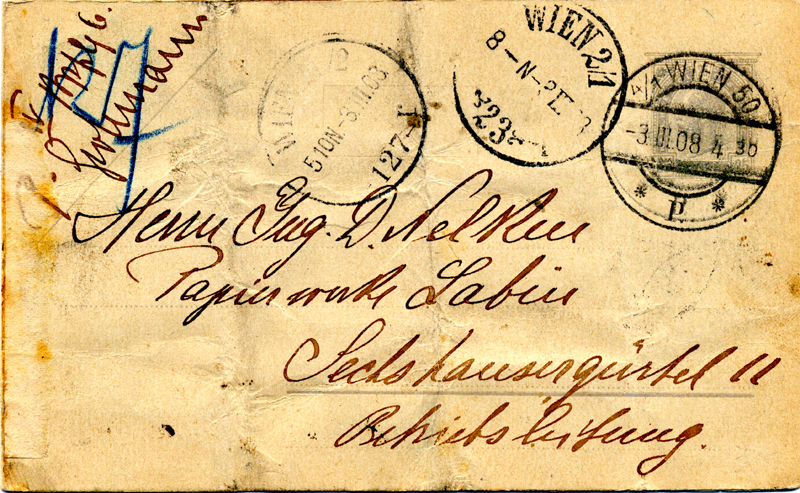 WIEN 2/1
8-N-
*23*
510N-3.III.08
127-
4/1 WIEN 50
-3.III.08 4 30
* p *
Herrn Ing. D. Nelken
Papierwerke Labin
Sechshausergürtel 11
Betriebsleitung.